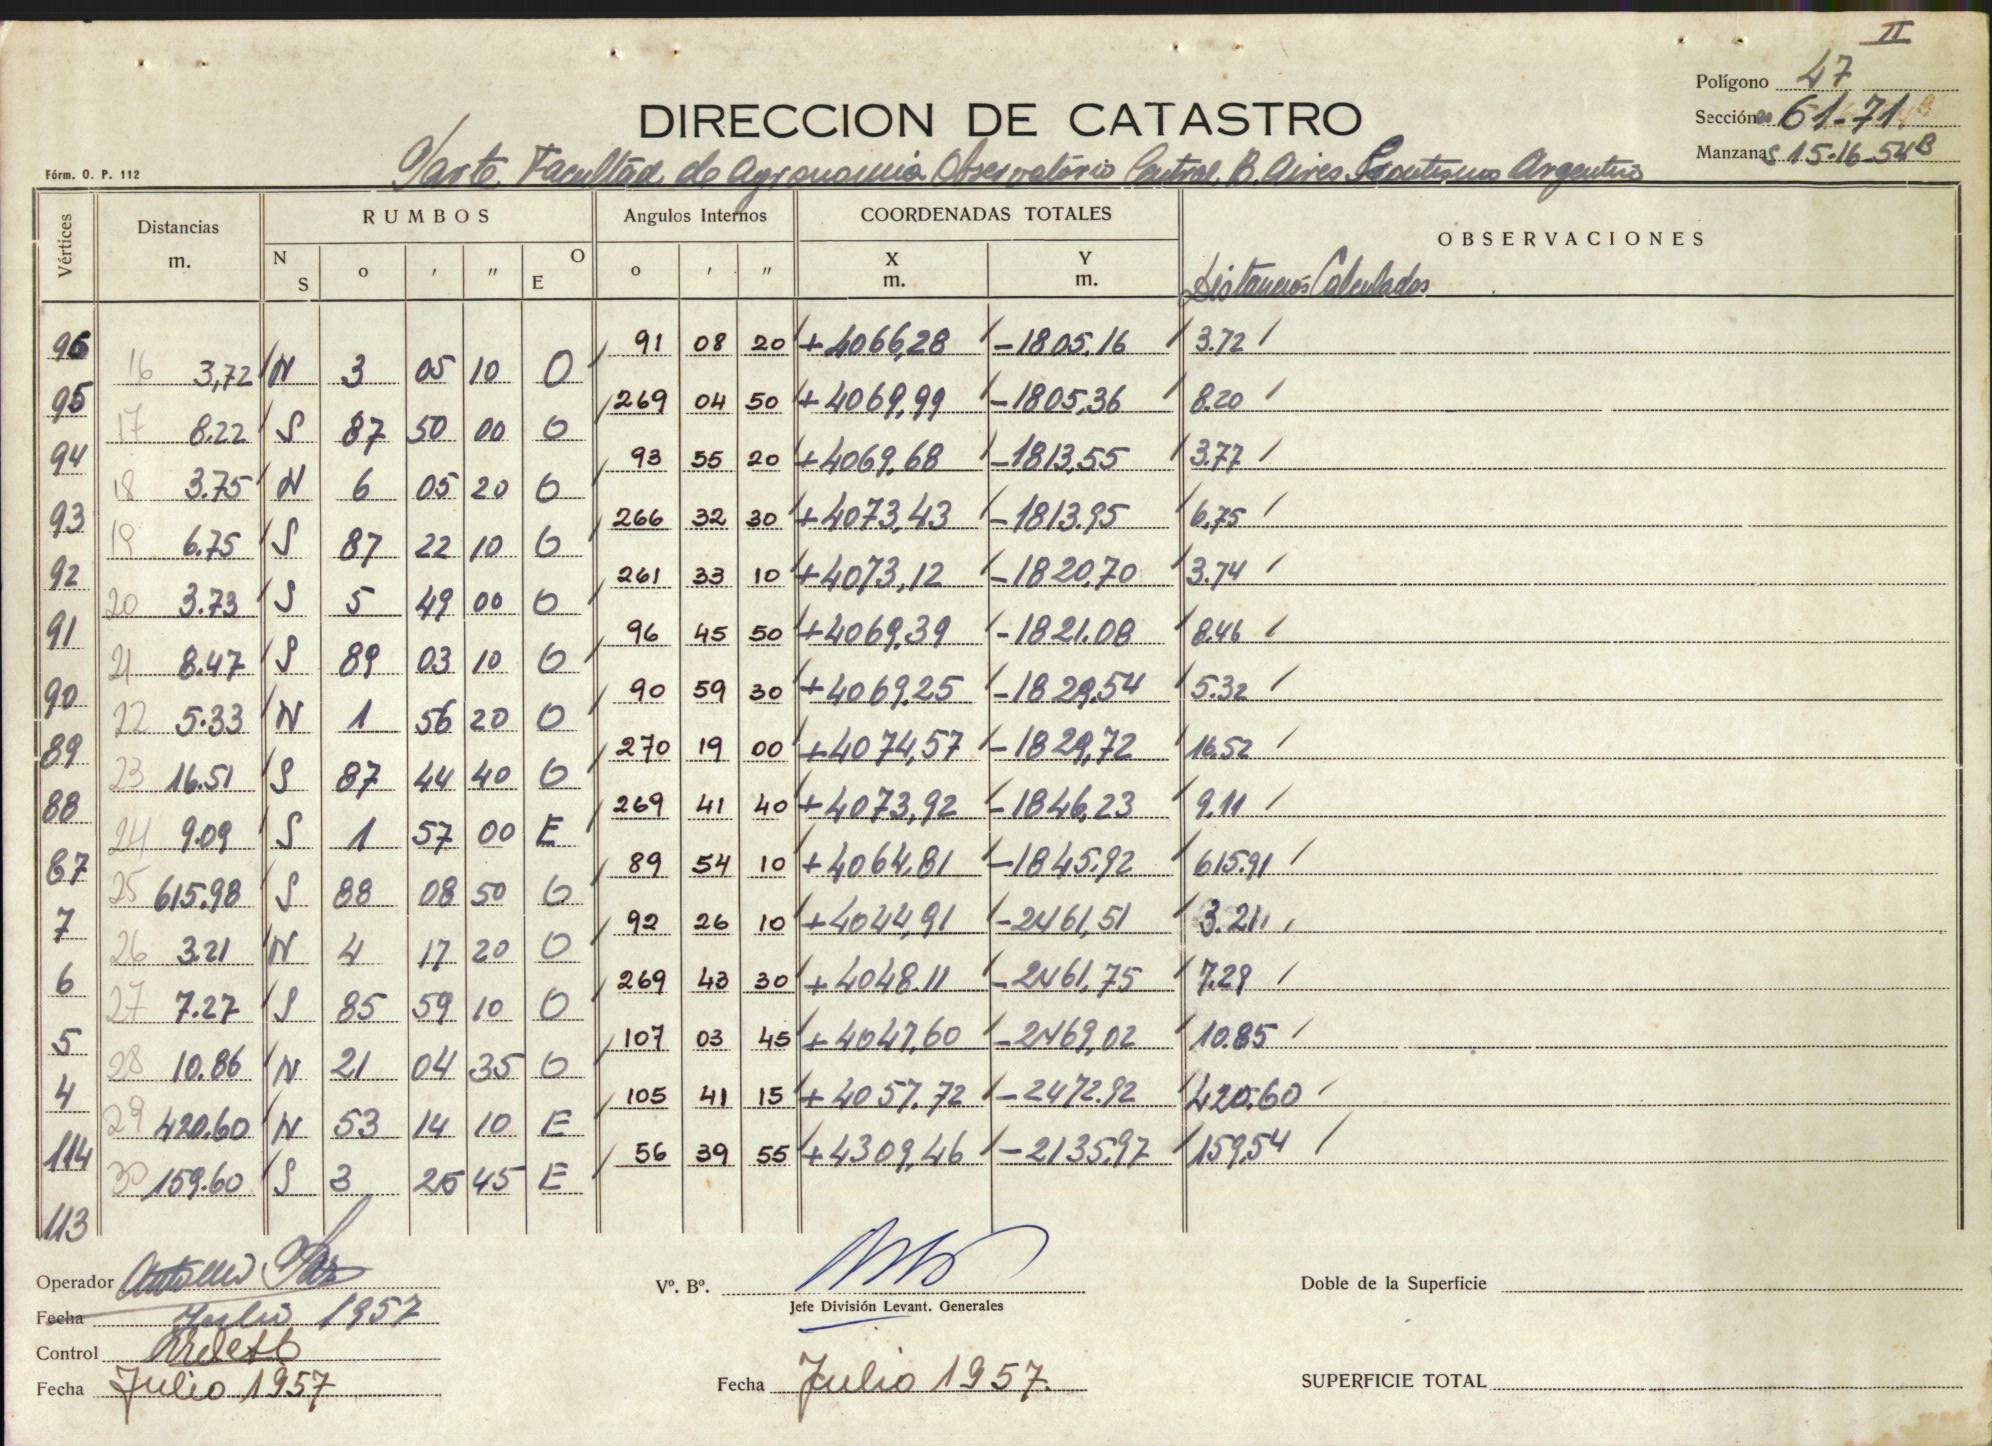 II
Polígono 47
DIRECCION DE CATASTRO
Sección 61-71
Manzanas 15-16-54B
Fórm. O. P. 112
Parte Facultad de Agronomia Observatório Central B. Aires Argentino
Vértices Distancias m. RUMBOS N S o ' " O E Angulos Internos o ' " COORDENADAS TOTALES X m. Y m. OBSERVACIONES
Distancias Calculados
96 91 08 20 +4066,28 -1805.16 3.72
16 3,72 N 3 05 10 O
95 269 04 50 +4069,99 -1805,36 8.20
17 8.22 S 87 50 00 O
94 93 55 20 +4069,68 -1813,55 3.77
18 3.75 N 6 05 20 O
93 266 32 30 +4073,43 -1813.95 6,75
19 6.75 S 87 22 10 O
92 261 33 10 +4073,12 -1820,70 3.74
20 3.73 S 5 49 00 O
91 96 45 50 +4069,39 -1821.08 8.46
21 8.47 S 89 03 10 O
90 90 59 30 +4069,25 -1829,54 5.32
22 5.33 N 1 56 20 O
89 270 19 00 +4074,57 -1829,72 16.52
23 16.51 S 87 44 40 O
88 269 41 40 +4073,92 -1846,23 9.11
24 9.09 S 1 57 00 E
87 89 54 10 +4064,81 -1845,92 615.91
25 615.98 S 88 08 50 O
7 92 26 10 +4044,91 -2461,51 3.21
26 3.21 N 4 17 20 O
6 269 43 30 +4048.11 -2461,75 7.29
27 7.27 S 85 59 10 O
5 107 03 45 +4047,60 -2469,02 10.85
28 10.86 N 21 04 35 O
4 105 41 15 +4057.72 -2472.92 420.60
29 420.60 N 53 14 10 E
114 56 39 55 +4309,46 -2135,97 159,54
30 159.60 S 3 25 45 E
113
Operador Antonio Paz
Vº. Bº.
Doble de la Superficie
Jefe División Levant. Generales
Fecha Julio 1957
Control
Fecha Julio 1957
Fecha Julio 1957.
SUPERFICIE TOTAL